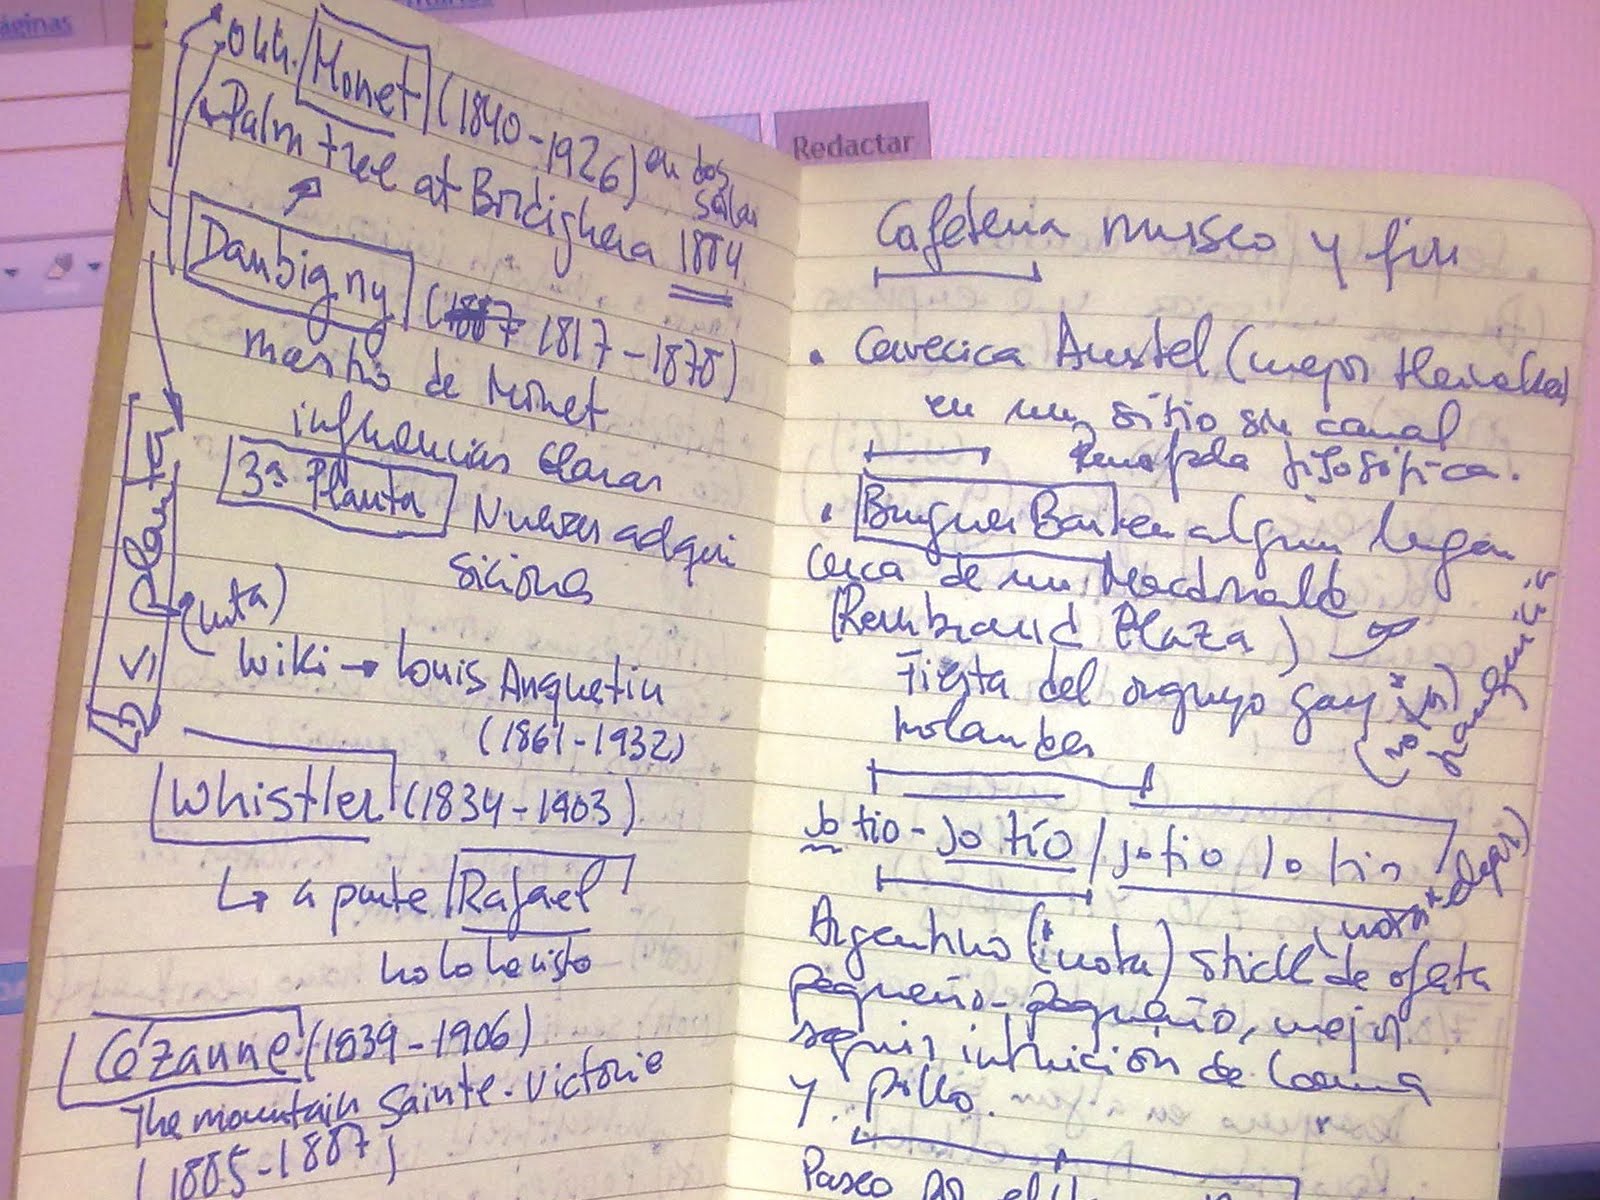 áginas
Redactar
ohh. Monet (1840-1926) en dos
salas
Palm tree at Bordighera 1884
Daubigny (1887 1817-1878)
maestro de Monet
influencias claras
3ª Planta Nuevas adqui
siciones
Planta
(nota)
Wiki → Louis Anquetin
(1861-1932)
Whistler (1834-1903)
↳ a parte Rafael
holohovisto
Cézanne (1839-1906)
The mountain Sainte-Victorie
(1885-1887)
Cafetería museo y fin
• Cervecica Amstel (mejor Heineken)
en un sitio sin canal
Parrafada filosófica.
• Burguer Bar en algún lugar
cerca de un Macdonalds
(Rembrand Plaza)
Fiesta del orgullo gay
holandes
Jo tio - Jo tío / jo tio jo tio
Argentino (nota) stick de ofeta
pequeño-pequeño, mejor
seguir intuición de
y pillo.
Paseo por el